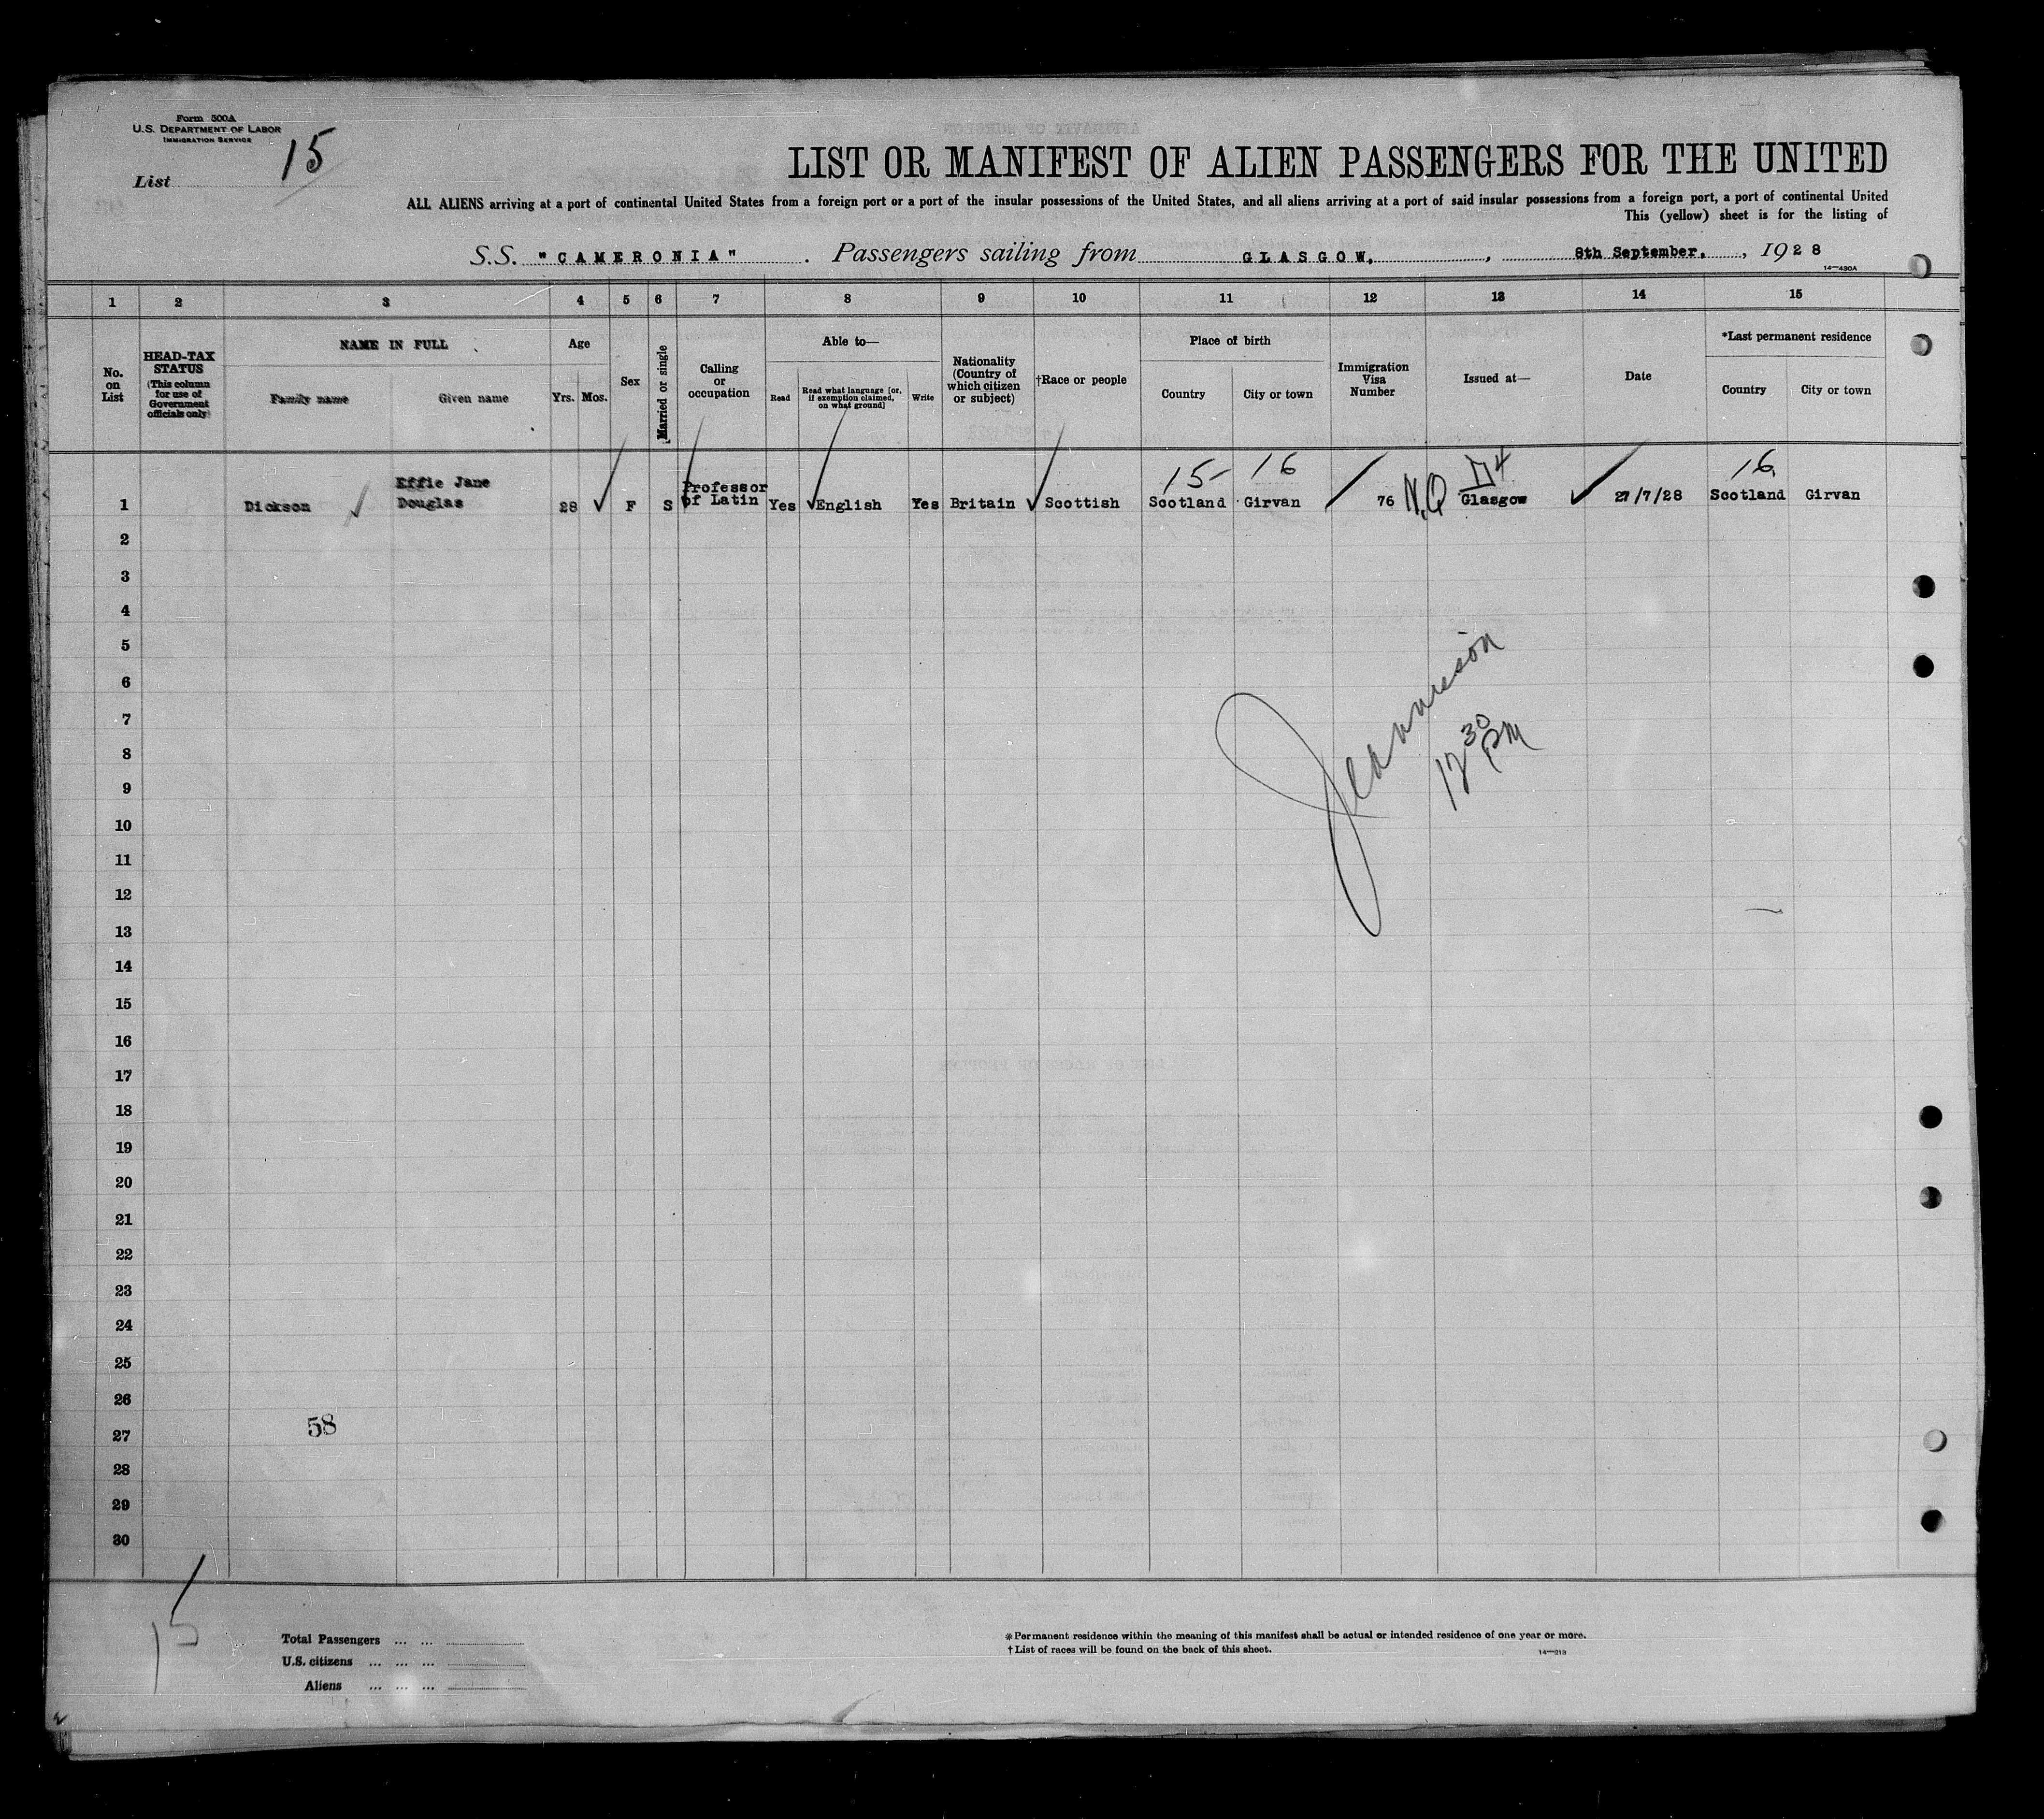 Form 500A
U.S. DEPARTMENT OF LABOR
IMMIGRATION SERVICE
List 15
LIST OR MANIFEST OF ALIEN PASSENGERS FOR THE UNITED
ALL ALIENS arriving at a port of continental United States from a foreign port or a port of the insular possessions of the United States, and all aliens arriving at a port of said insular possessions from a foreign port, a port of continental United
This (yellow) sheet is for the listing of
S.S. "CAMERONIA". Passengers sailing from GLASGOW, , 8th September, , 1928
14—430A
1 2 3 4 5 6 7 8 9 10 11 12 13 14 15
No. on List
HEAD-TAX STATUS (This column for use of Government officials only)
NAME IN FULL
Family name Given name
Age
Yrs. Mos.
Sex
Married or single
Calling or occupation
Able to—
Read
Read what language [or, if exemption claimed, on what ground]
Write
Nationality (Country of which citizen or subject)
†Race or people
Place of birth
Country City or town
Immigration Visa Number
Issued at—
Date
*Last permanent residence
Country City or town
15 16 16
1 Dickson Effie Jane Douglas 28 F S Professor of Latin Yes English Yes Britain Scottish Scotland Girvan 76 N.Q Glasgow 27/7/28 Scotland Girvan
2
3
4
5
6
7
8
9
10
11
12
13
14
15
16
17
18
19
20
21
22
23
24
25
26
27
28
29
30
12 30 PM
58
15
Total Passengers ... ...
U.S. citizens ... ... ...
Aliens ... ... ...
*Permanent residence within the meaning of this manifest shall be actual or intended residence of one year or more.
†List of races will be found on the back of this sheet.
14—213